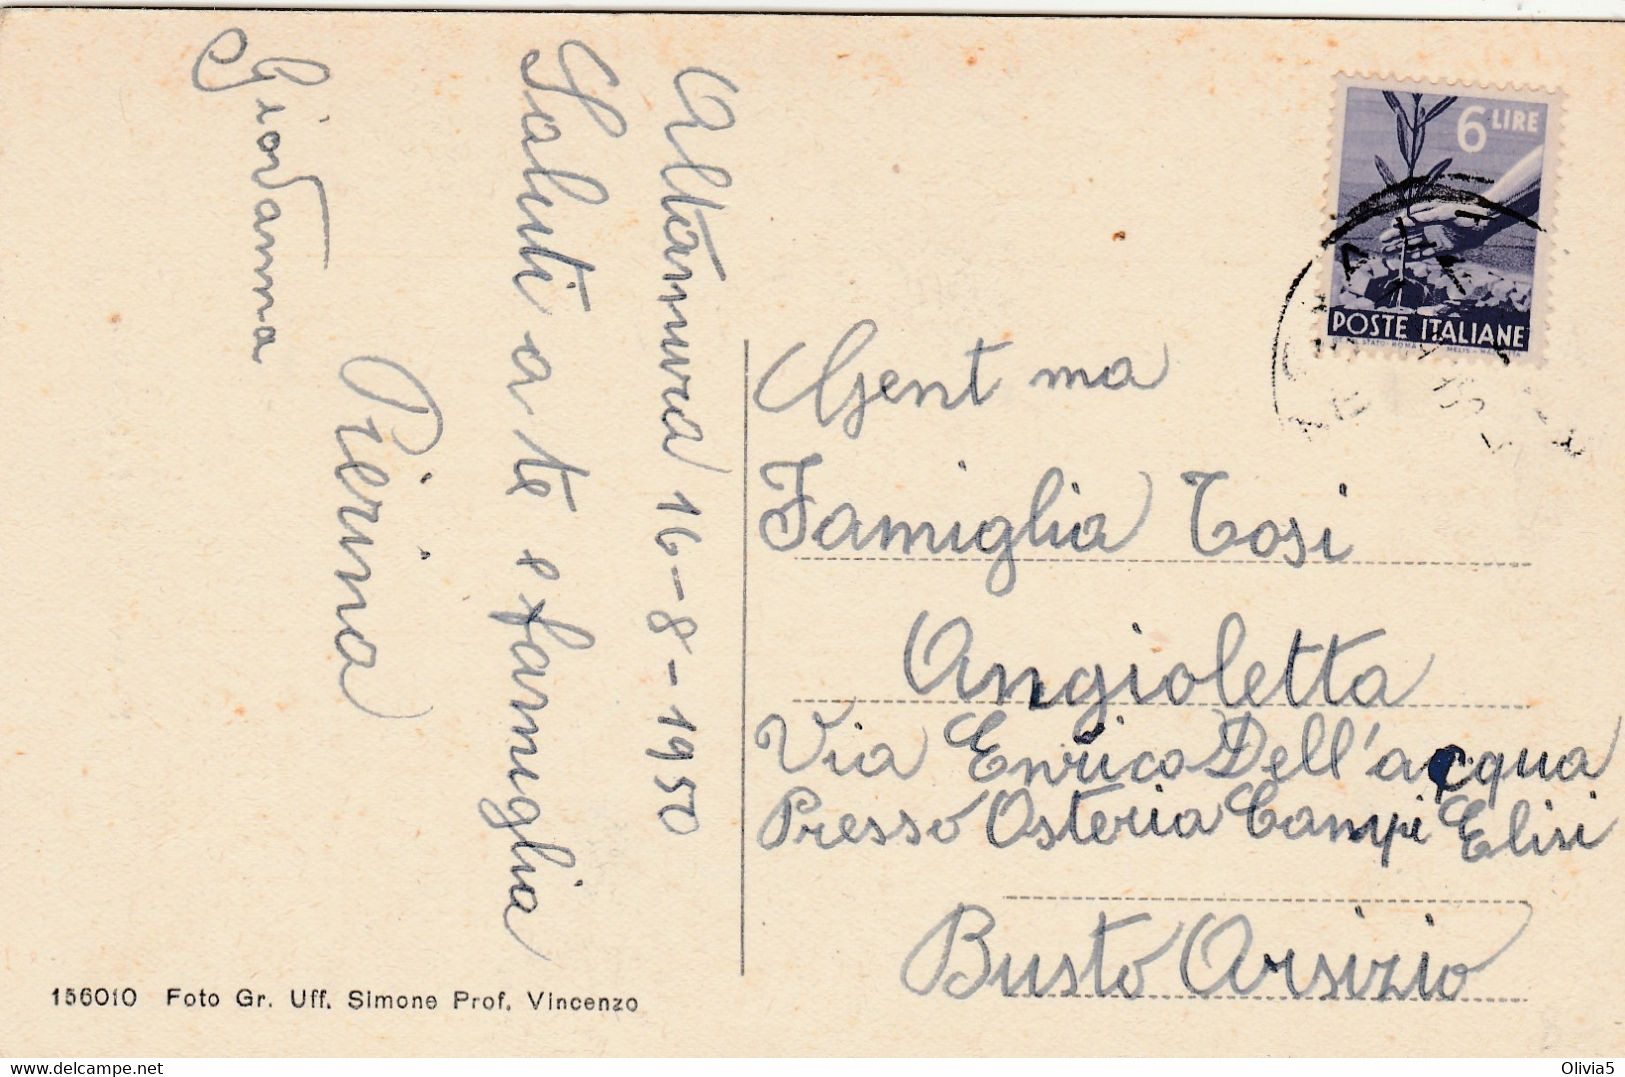 Altamura 16-8-1950
Saluti a te e famiglia
Pierina
Giovanna
6 LIRE
POSTE ITALIANE
Gent ma
Famiglia Tosi
Angioletta
Via Enrico Dell'acqua
Presso Osteria Campi Elisi
Busto Arsizio
156010 Foto Gr. Uff. Simone Prof. Vincenzo
Olivia5
delcampe.net